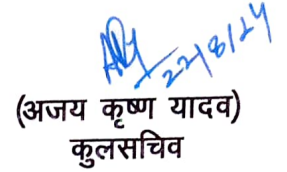 22/8/24
(अजय कृष्ण यादव)
कुलसचिव